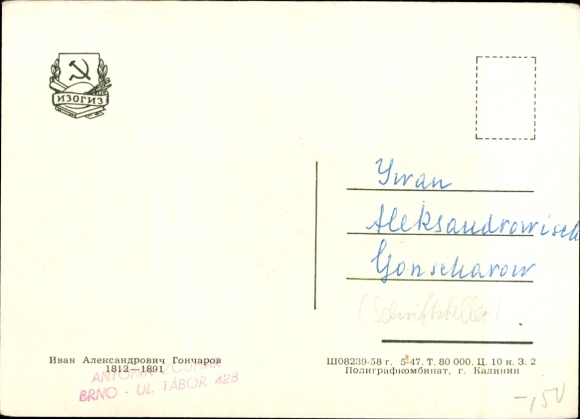 ИЗОГИЗ
Ywan
Aleksandrowisch
Gonscharow
(Schriftsteller)
Иван Александрович Гончаров
1812—1891
ANTONÍN
BRNO - UL. TÁBOR 42B
Ш08239-58 г. 5-47. Т. 80 000. Ц. 10 к. З. 2
Полиграфкомбинат, г. Калинин
-,50